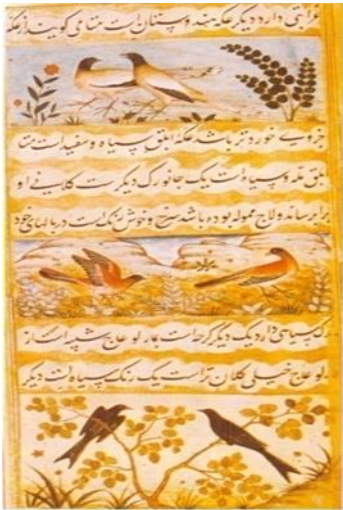 غرابتی دارد دیگر عکه هندوستان است متا می گویند از عکه
جزوی خوردتر باشد عکه ابلق سیاه و سفید است متا
ابلق مله و سیاه است یک جانورک دیگر ست کلانی او
برابر ساندولاج ممولہ بوده باشد سرخ و خوش رنگ است در بالهای خود
سیاهی دارد یک دیگر است شبیه است از
خیلی کلان تراست یک رنگ سیاه است دیگر